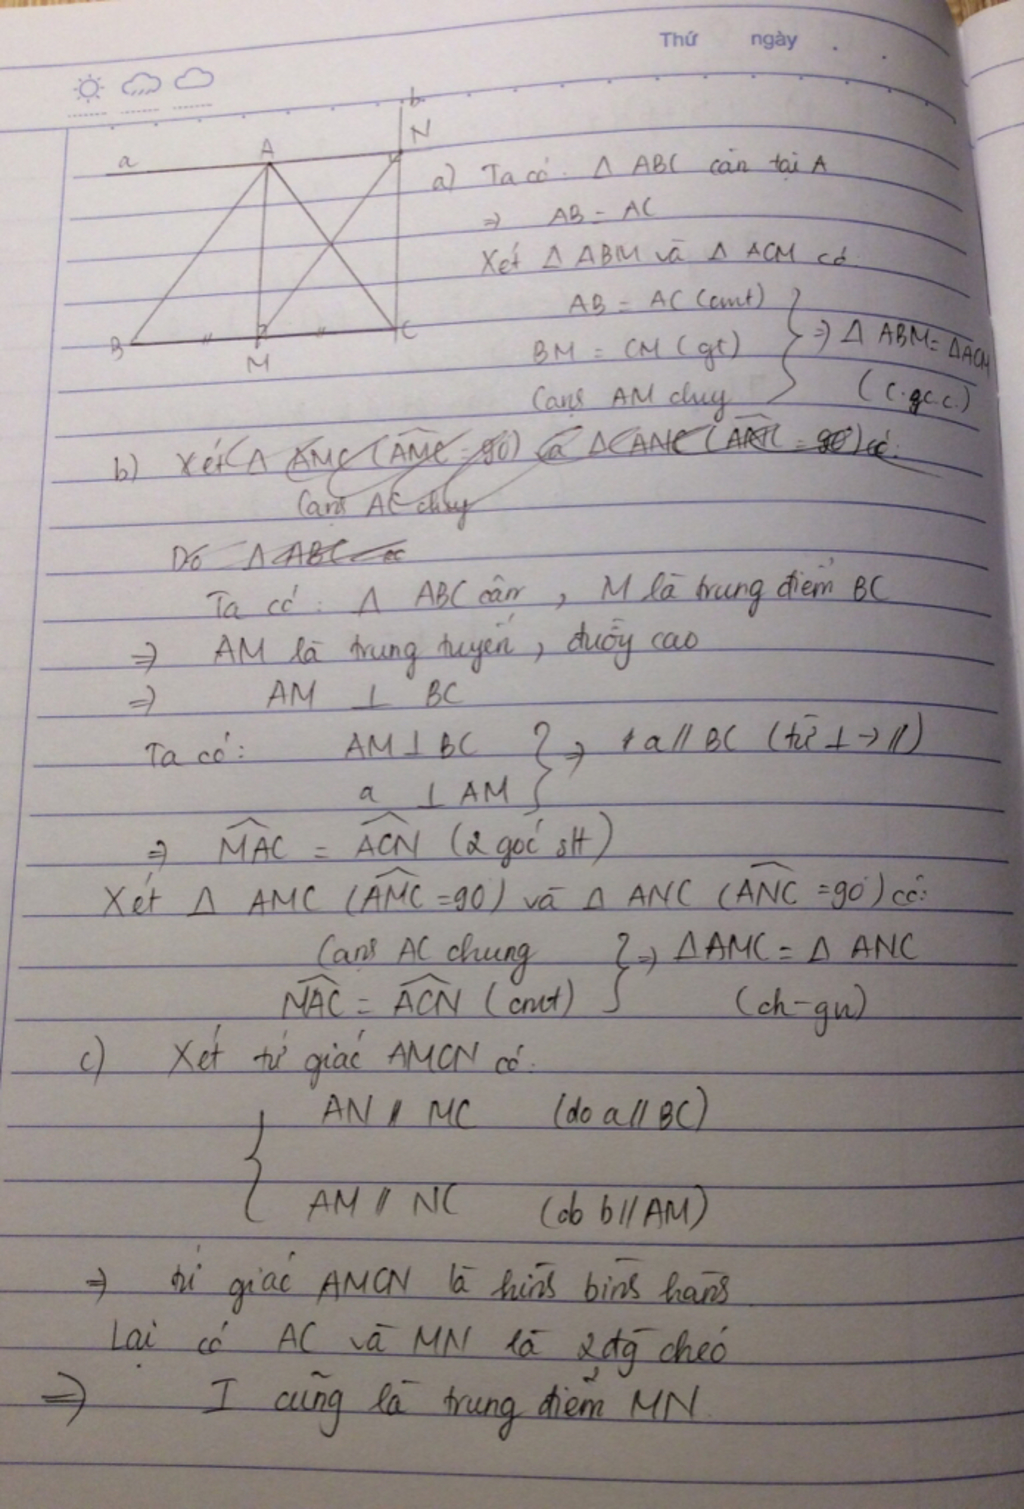 Thứ ngày
b
N
a
A
B
M
C
a) Ta có: Δ ABC cân tại A
⇒ AB = AC
Xét Δ ABM và Δ ACM có
AB = AC (cmt)
BM = CM (gt)
Cạnh AM chug
} ⇒ Δ ABM = ΔACM
(c.gc.c.)
b) Xét Δ AMC (AMC = 90) và Δ ANC (ANC = 90) có:
Cạnh AC chug
Do Δ ABC
Ta có: Δ ABC cân, M là trung điểm BC
⇒ AM là trung tuyến, đường cao
⇒ AM ⊥ BC
Ta có: AM ⊥ BC } ⇒ a // BC (từ ⊥ → //)
a ⊥ AM
⇒ MAC = ACN (2 góc slt)
Xét Δ AMC (AMC = 90) và Δ ANC (ANC = 90) có:
Cạnh AC chung } ⇒ ΔAMC = Δ ANC
MAC = ACN (cmt) (ch-gn)
c) Xét tứ giác AMCN có:
AN // MC (do a // BC)
{
AM // NC (do b // AM)
⇒ tứ giác AMCN là hình bình hành
Lại có AC và MN là 2 đg chéo
⇒ I cũng là trung điểm MN.